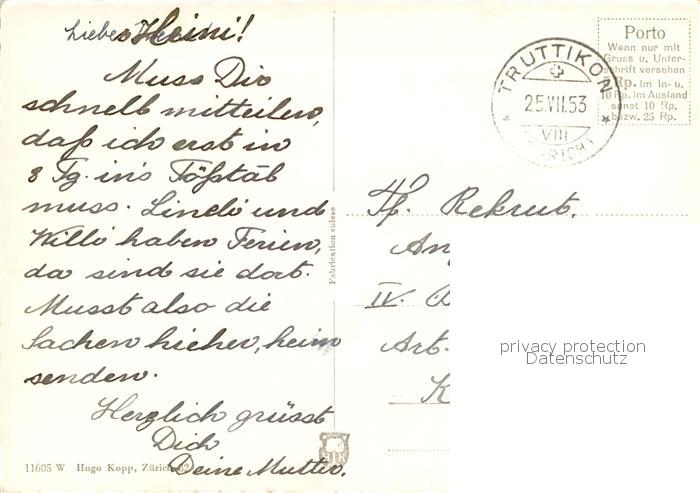 Lieber Heini!
Muss Dir
schnell mitteilen,
daß ich erst in
8 Tg. in's Tößtal
muss. Lindi und
Willi haben Ferien,
da sind sie dort.
Musst also die
Sachen hieher, heim
senden.
Herzlich grüsst
Dich
Deine Mutter.
11605 W Hugo Kopp, Zürich 52
Fabrication suisse
HK
TRUTTIKON
25.VII.53
VIII
(ZÜRICH)
Porto
Wenn nur mit
Gruss u. Unter-
schrift versehen
Rp. im In- u.
10 Rp. im Ausland
sonst 10 Rp.
bzw. 25 Rp.
Rekrut.
IV.
Art.
K
privacy protection
Datenschutz